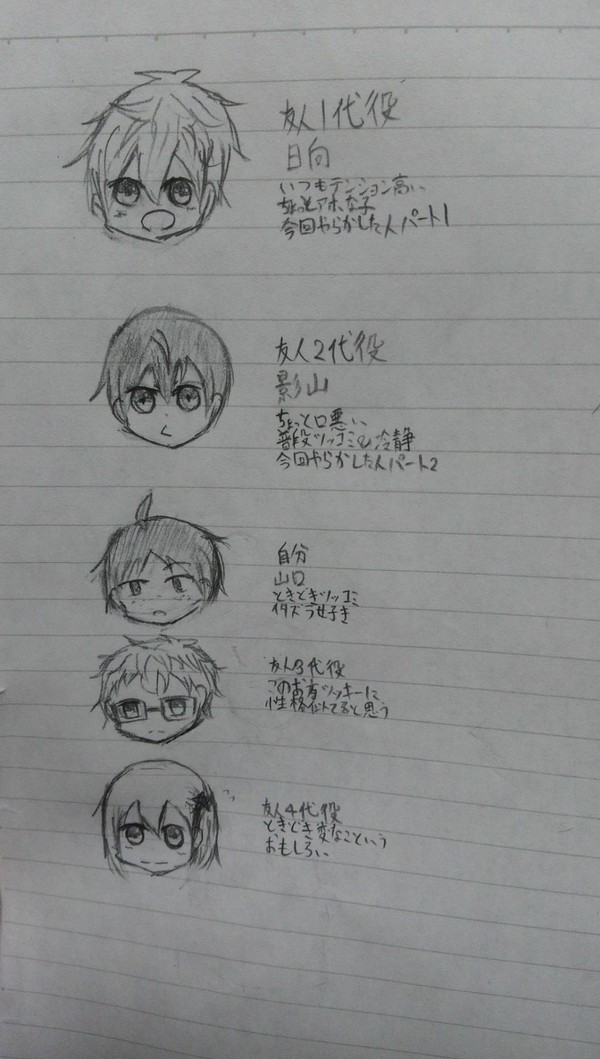 友人1代役
日向
いつもテンション高い
ちょっとアホな子
今回やらかした人パート1
友人2代役
影山
ちょっと口悪い
普段ツッコミ&冷静
今回やらかした人パート2
自分
山口
ときどきツッコミ
イタズラ好き
友人3代役
このお方ツッキーに
性格似てると思う
友人4代役
ときどき変なこという
おもしろい